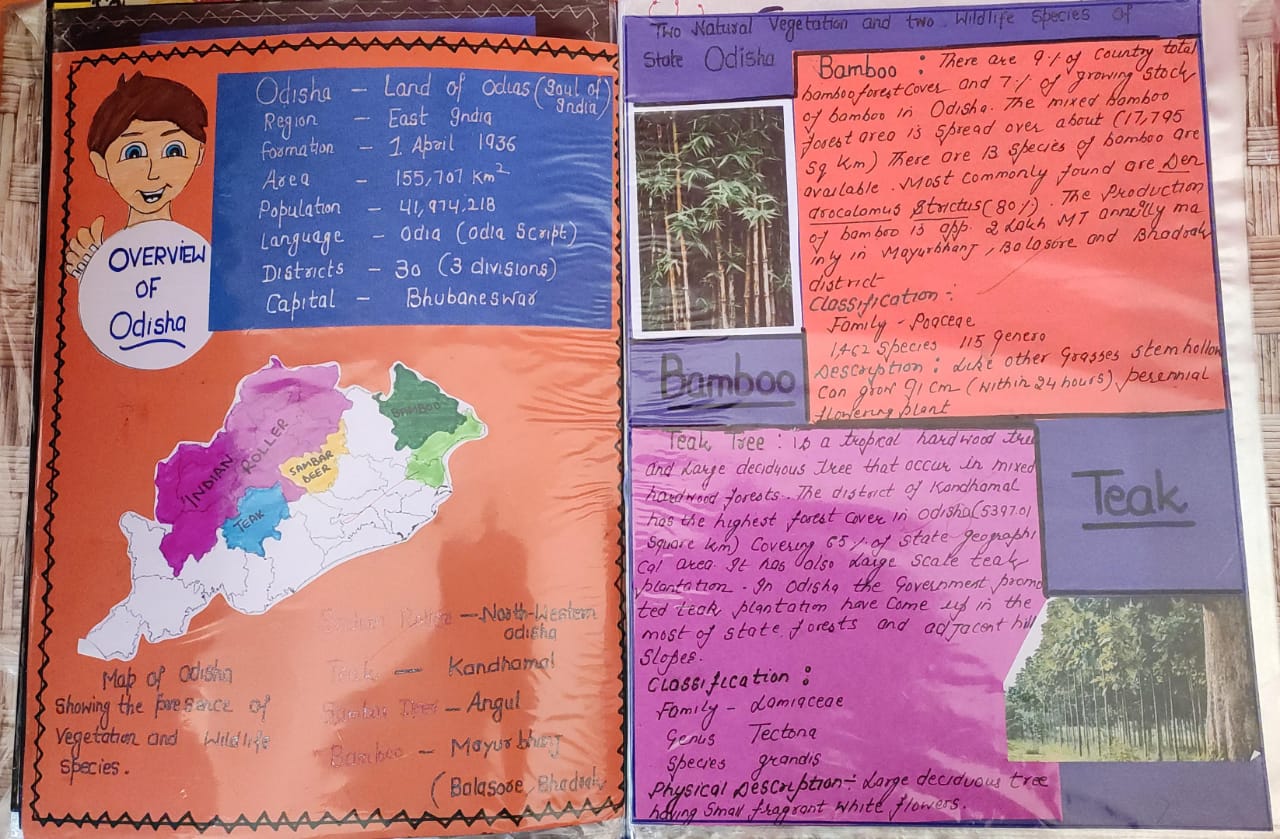 OVERVIEW
OF
Odisha
Odisha - Land of Odias (Soul of India)
Region - East India
formation - 1 April 1936
Area - 155,707 Km²
Population - 41,974,218
Language - Odia (Odia Script)
Districts - 30 (3 divisions)
Capital - Bhubaneswar
INDIAN ROLLER
SAMBAR
DEER
TEAK
BAMBOO
Map of Odisha
showing the presence of
Vegetation and Wildlife
species.
Indian Roller - North-Western
odisha
Teak - Kandhamal
Sambar Deer - Angul
Bamboo - Mayurbhanj
(Balasore, Bhadrak
Two Natural Vegetation and two Wildlife Species of
State Odisha
Bamboo : There are 9% of Country total
bamboo forest Cover and 7% of growing stock
of bamboo in Odisha. The mixed bamboo
forest area is spread over about (17,795
Sq Km) There are 13 species of bamboo are
available. Most commonly found are Den
drocalamus Strictus (80%). The Production
of bamboo is app. 2 Lakh MT annelly ma
inly in Mayurbhanj, Balasore and Bhadrak
district
Classification :
Family - Poaceae
1,462 Species 115 genero
Description : Like other Grasses stem hollow
Can grow 91 cm (within 24 hours), perennial
flowering plant
Bamboo
Teak Tree : is a tropical hardwood tree
and Large deciduous tree that occur in mixed
hardwood forests. The district of Kandhamal
has the highest forest cover in odisha (5397.01
Square Km) Covering 65% of State geographi
cal area. It has also Large Scale teak
plantation. In Odisha the Government promo
ted teak plantation have Come up in the
most of state forests and adjacent hill
Slopes.
Classification :
Family - Lamiaceae
Genus Tectona
Species grandis
Physical Description - Large deciduous tree
having small fragrant white flowers.
Teak